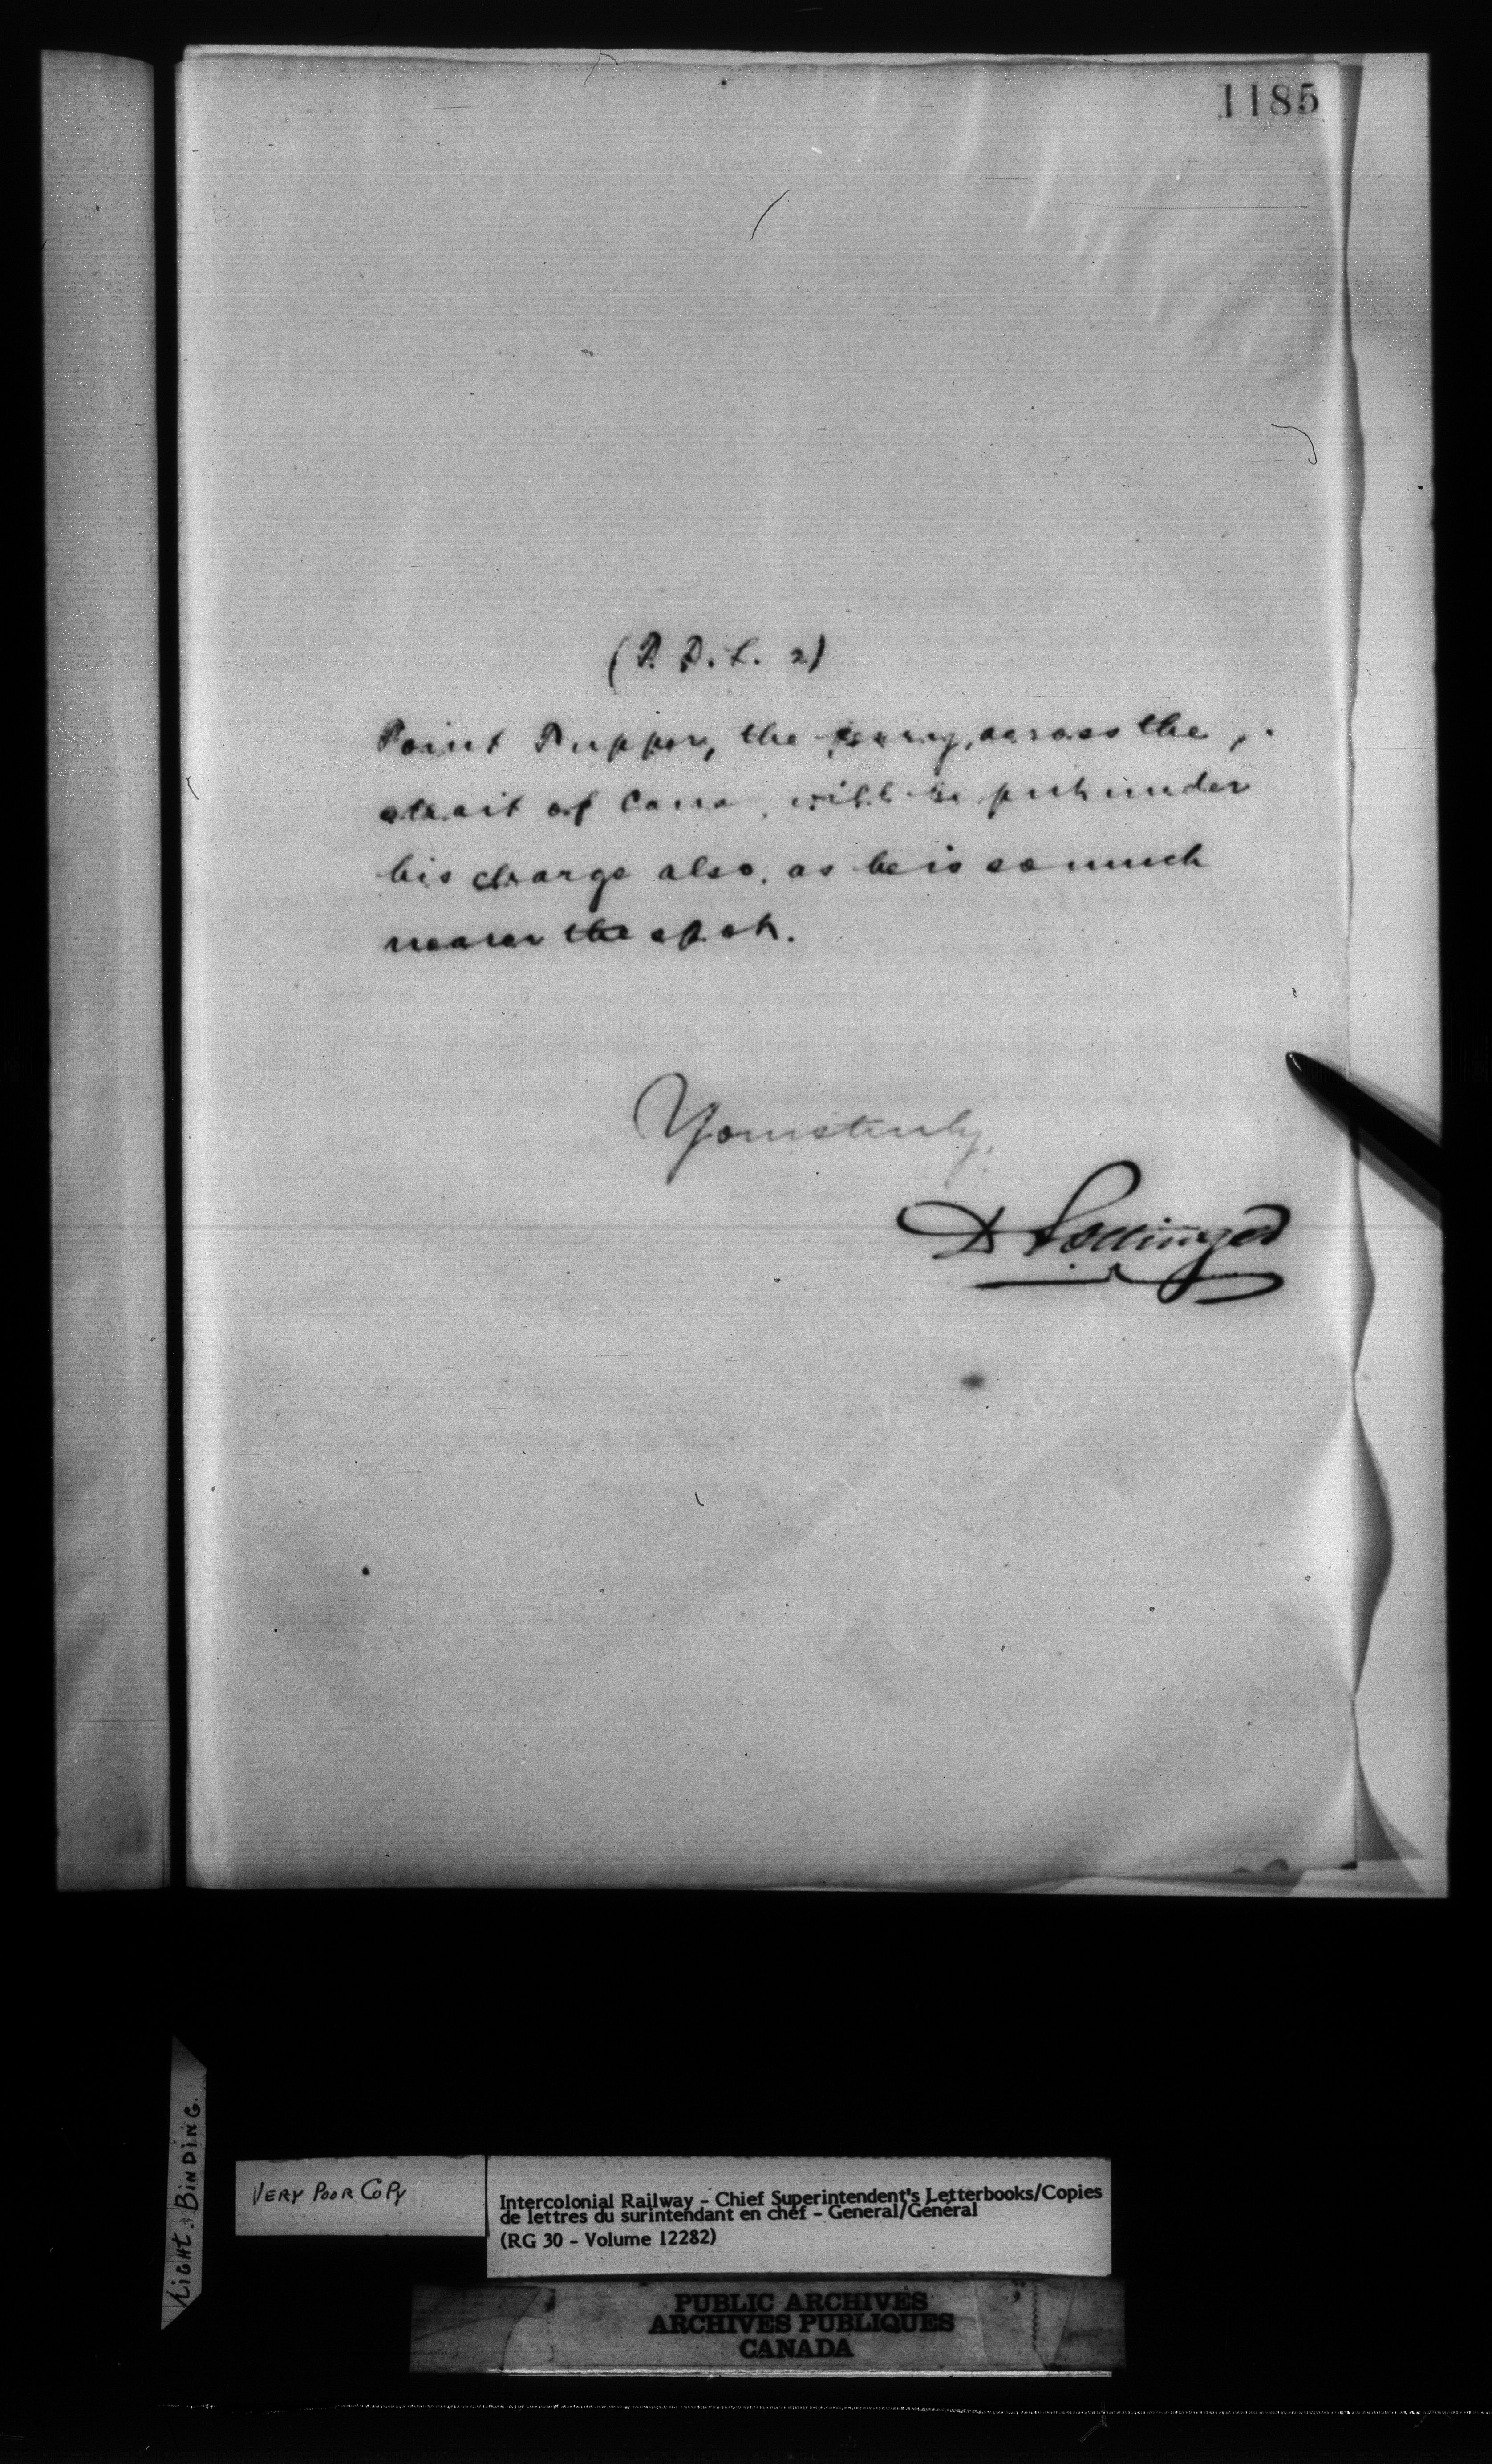 1185
(P. P. L. 2)
Point Tupper, the ferry, across the
strait of Canso, will be put under
his charge also, as he is so much
nearer the spot.
Yours truly,
D Pottinger
LIGHT BINDING.
VERY POOR COPY
Intercolonial Railway - Chief Superintendent's Letterbooks/Copies
de lettres du surintendant en chef - General/Général
(RG 30 - Volume 12282)
PUBLIC ARCHIVES
ARCHIVES PUBLIQUES
CANADA